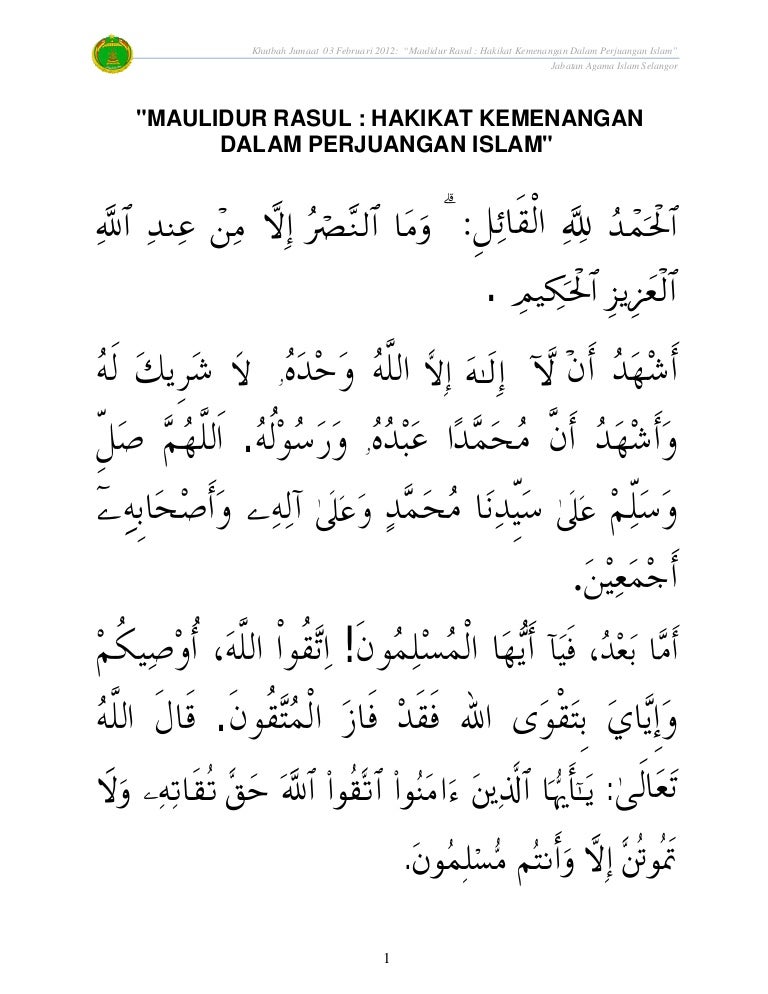 Khutbah Jumaat 03 Februari 2012: "Maulidur Rasul : Hakikat Kemenangan Dalam Perjuangan Islam"
Jabatan Agama Islam Selangor
"MAULIDUR RASUL : HAKIKAT KEMENANGAN
DALAM PERJUANGAN ISLAM"
ٱلْحَمْدُ لِلَّهِ الْقَائِلِ: ۗ وَمَا ٱلنَّصْرُ إِلَّا مِنْ عِندِ ٱللَّهِ
ٱلْعَزِيزِ ٱلْحَكِيمِ .
أَشْهَدُ أَنْ لَّآ إِلَـٰهَ إِلاَّ اللَّهُ وَحْدَهُۥ لَا شَرِيكَ لَهُ
وَأَشْهَدُ أَنَّ مُحَمَّدًا عَبْدُهُۥ وَرَسُوْلُهُ. اَللَّهُمَّ صَلِّ
وَسَلِّمْ عَلَىٰ سَيِّدِنَا مُحَمَّدٍ وَعَلَىٰ آلِهِۦ وَأَصْحَابِهِۦٓ
أَجْمَعِيْنَ.
أَمَّا بَعْدُ، فَيَآ أَيُّهَا الْمُسْلِمُونَ! اِتَّقُواْ اللَّهَ، أُوْصِيكُمْ
وَإِيَّايَ بِتَقْوَى الله فَقَدْ فَازَ الْمُتَّقُونَ. قَالَ اللَّهُ
تَعَالَىٰ: يَـٰٓأَيُّهَا ٱلَّذِينَ ءَامَنُواْ ٱتَّقُواْ ٱللَّهَ حَقَّ تُقَاتِهِۦ وَلَا
تَمُوتُنَّ إِلَّا وَأَنتُم مُّسْلِمُونَ.
1